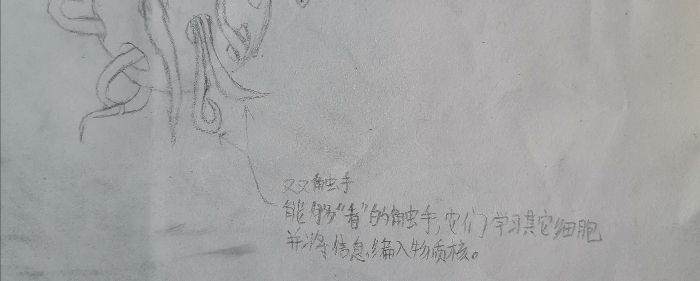 双触手
能够“看”的触手,它们学习其它细胞
并将信息编入物质核。